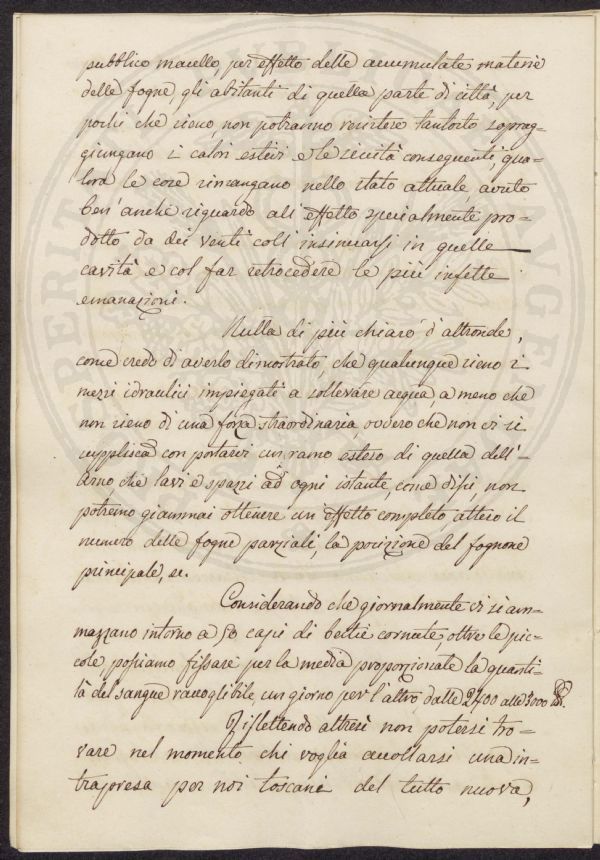 pubblico macello, per effetto delle accumulate materie
delle fogne, gli abitanti di quella parte di città, per
pochi che sieno, non potranno resistere tantosto soprag-
giungano i calori estivi e le siccità conseguenti, qua-
lora le cose rimangano nello stato attuale avuto
ben' anche riguardo all' effetto specialmente pro-
dotto da dei venti coll' insinuarsi in quelle
cavità e col far retrocedere le più infette
emanazioni.
Nulla di più chiaro d'altronde,
come credo d'averlo dimostrato, che qualunque sieno i
mezzi idraulici impiegati a sollevare acqua, a meno che
non sieno di una forza straordinaria, ovvero che non vi si
supplisca con portarvi un ramo esteso di quella dell'-
Arno che lavi e spazzi ad ogni istante, come dissi, non
potremo giammai ottenere un' effetto completo atteso il
numero delle fogne parziali, la posizione del fognone
principale, ec.
Considerando che giornalmente vi si am-
mazzano intorno a 50 capi di bestie cornute, oltre le pic-
cole possiamo fissare per la media proporzionale la quanti-
tà del sangue raccoglibile, un giorno per l'altro, dalle 2400 alle 3000
Riflettendo altresì non potersi tro-
vare nel momento chi voglia accollarsi una in-
trapresa per noi toscani del tutto nuova,